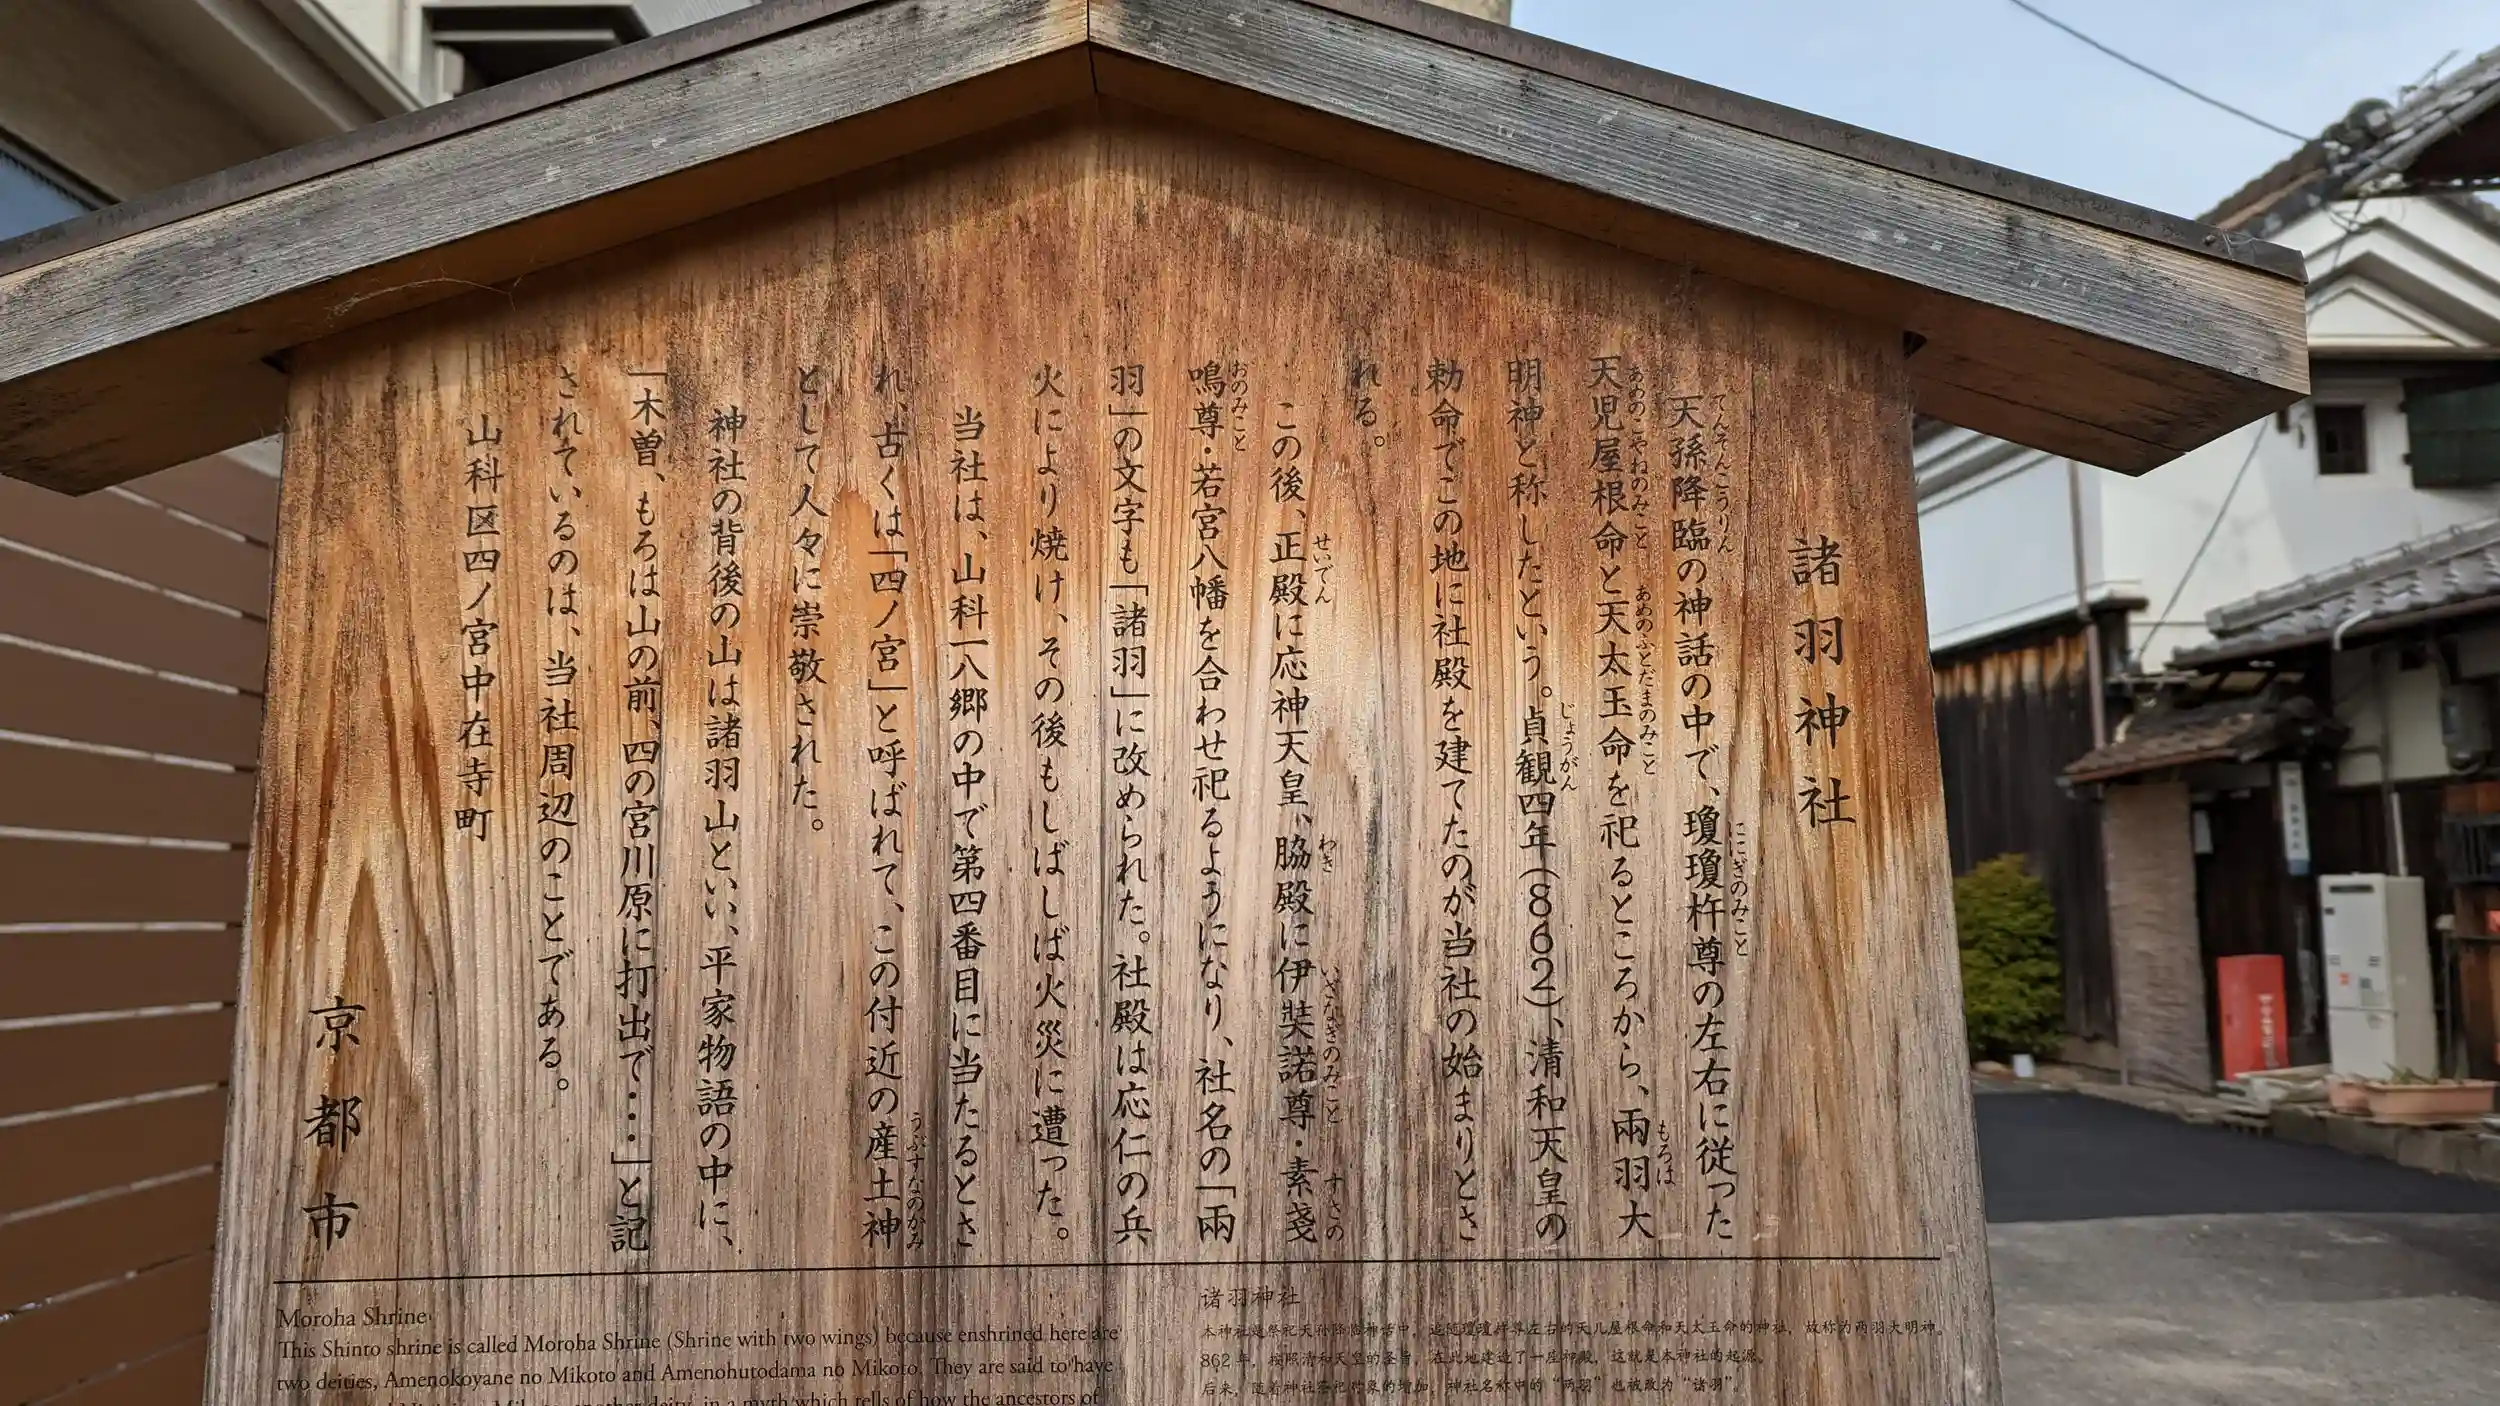 諸羽神社
天孫降臨の神話の中で、瓊瓊杵尊の左右に従った
てんそんこうりん
ににぎのみこと
天児屋根命と天太玉命を祀るところから、兩羽大
あめのこやねのみこと
あめのふとだまのみこと
もろは
明神と称したという。貞観四年(862)、清和天皇の
じょうがん
勅命でこの地に社殿を建てたのが当社の始まりとさ
れる。
この後、正殿に応神天皇、脇殿に伊奘諾尊・素戔
せいでん
わき
いざなぎのみこと
すさの
嗚尊・若宮八幡を合わせ祀るようになり、社名の「兩
おのみこと
羽」の文字も「諸羽」に改められた。社殿は応仁の兵
火により焼け、その後もしばしば火災に遭った。
当社は、山科一八郷の中で第四番目に当たるとさ
れ、古くは「四ノ宮」と呼ばれて、この付近の産土神
うぶすなのかみ
として人々に崇敬された。
神社の背後の山は諸羽山といい、平家物語の中に、
「木曽、もろは山の前、四の宮川原に打出で・・・」と記
されているのは、当社周辺のことである。
山科区四ノ宮中在寺町
京都市
Moroha Shrine
This Shinto shrine is called Moroha Shrine (Shrine with two wings) because enshrined here are
two deities, Amenokoyane no Mikoto and Amenohutodama no Mikoto. They are said to have
another deity, in a myth which tells of how the ancestors of
诸羽神社
本神社是祭祀天孙降临神话中，追随琼琼杵尊左右的天儿屋根命和天太玉命的神社，故称为两羽大明神。
862年，按照清和天皇的圣旨，在此地建造了一座神殿，这就是本神社的起源。
后来，随着神社祭祀对象的增加，神社名称中的“两羽”也被改为“诸羽”。